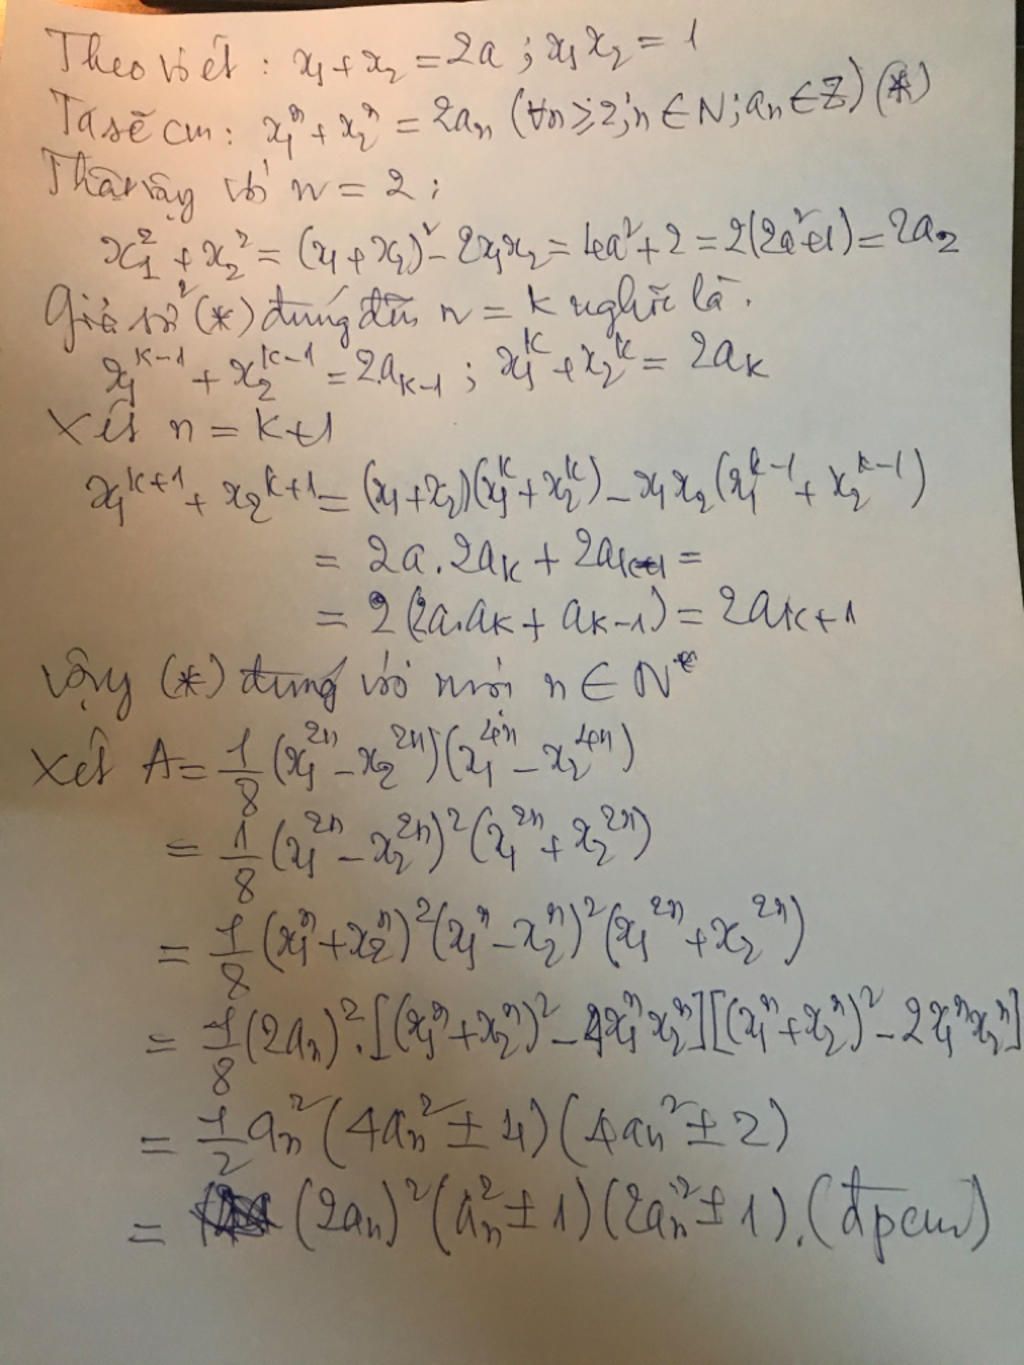 Theo viét : x₁ + x₂ = 2a ; x₁ x₂ = 1
Ta sẽ cm : x₁ⁿ + x₂ⁿ = 2aₙ (∀n ≥ 2; n ∈ N; aₙ ∈ Z) (*)
Thật vậy với n = 2 :
x₁² + x₂² = (x₁ + x₂)² - 2x₁x₂ = 4a² + 2 = 2(2a² + 1) = 2a₂
Giả sử (*) đúng đến n = k nghĩa là.
x₁^{k-1} + x₂^{k-1} = 2a_{k-1} ; x₁^k + x₂^k = 2a_k
Xét n = k+1
x₁^{k+1} + x₂^{k+1} = (x₁ + x₂)(x₁^k + x₂^k) - x₁x₂(x₁^{k-1} + x₂^{k-1})
= 2a . 2a_k + 2a_{k-1} =
= 2(2a.a_k + a_{k-1}) = 2a_{k+1}
Vậy (*) đúng với mọi n ∈ N*
Xét A = 1/8 (x₁^{2n} - x₂^{2n})(x₁^{4n} - x₂^{4n})
= 1/8 (x₁^{2n} - x₂^{2n})² (x₁^{2n} + x₂^{2n})
= 1/8 (x₁ⁿ + x₂ⁿ)² (x₁ⁿ - x₂ⁿ)² (x₁^{2n} + x₂^{2n})
= 1/8 (2aₙ)² . [(x₁ⁿ + x₂ⁿ)² - 4x₁ⁿx₂ⁿ][(x₁ⁿ + x₂ⁿ)² - 2x₁ⁿx₂ⁿ]
= 1/2 aₙ² (4aₙ² ± 4)(4aₙ² ± 2)
= (2aₙ)² (aₙ² ± 1)(2aₙ² ± 1). (đpcm)